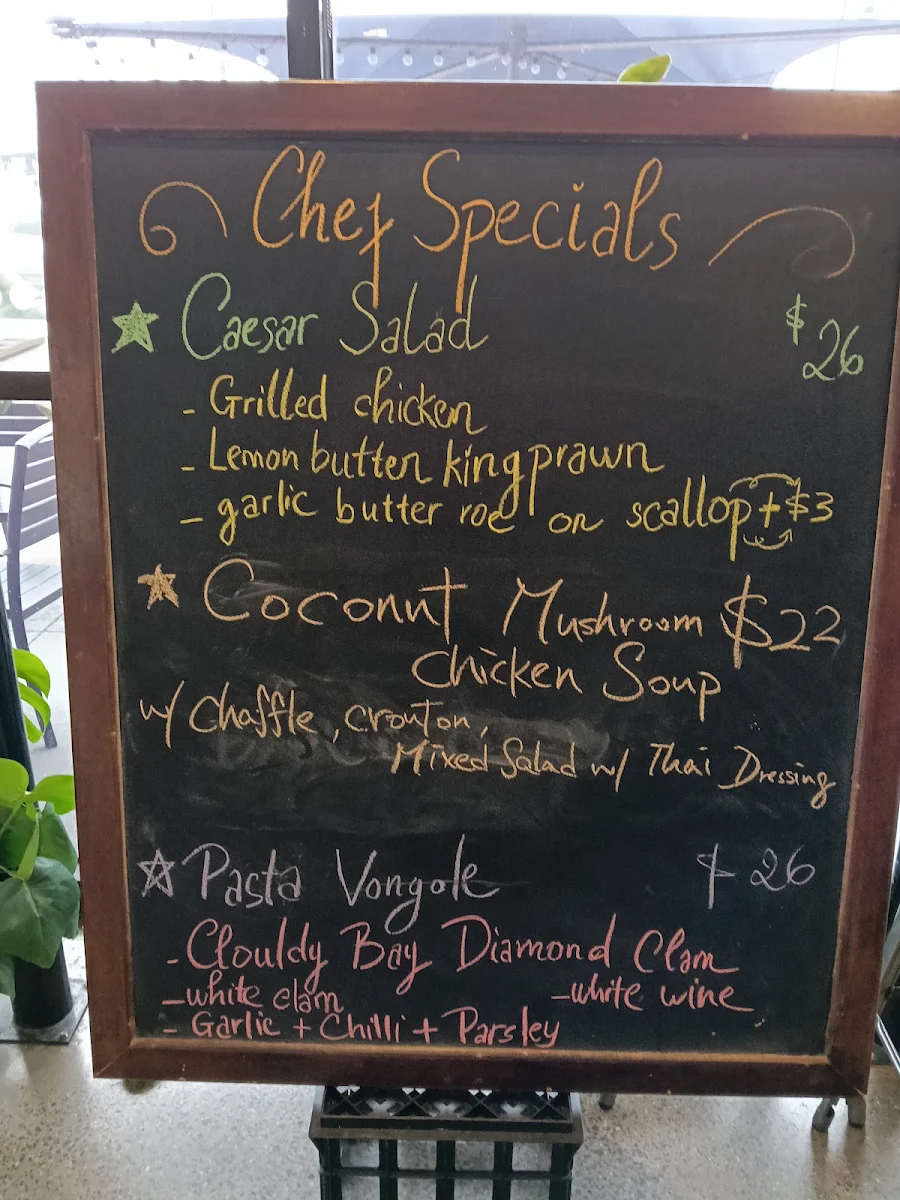 Chef Specials
Caesar Salad $26
- Grilled chicken
- Lemon butter king prawn
- garlic butter roe on scallop + $3
Coconut Mushroom $22
Chicken Soup
w/ Chaffle, crouton,
Mixed Salad w/ Thai Dressing
Pasta Vongole $26
- Clouldy Bay Diamond Clam
- white clam - white wine
- Garlic + Chilli + Parsley